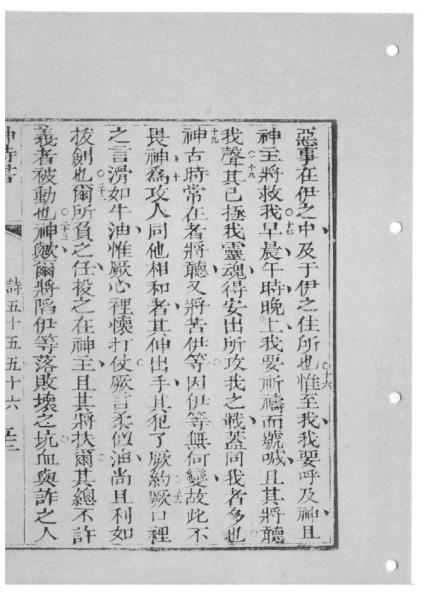 惡事在伊之中及于伊之住所也○十六惟至我我要呼及神且
神主將救我○十七早晨午時晚上我要祈禱而號喊且其將聽
我聲○十八其已拯我靈魂得安出所攻我之戰蓋同我者多也
○十九神古時常在者將聽又將苦伊等因伊等無何變故此不
畏神○二十爲攻人同他相和者其伸出手其犯了厥約○二十一厥口裡
之言滑如牛油惟厥心裡懷打仗厥言柔似油尚且利如
拔劍也○二十二爾所負之任投之在神主且其將扶爾其總不許
義者被動也○二十三神歟爾將陷伊等落敗壞之坑血與詐之人
神詩書 詩五十五五十六